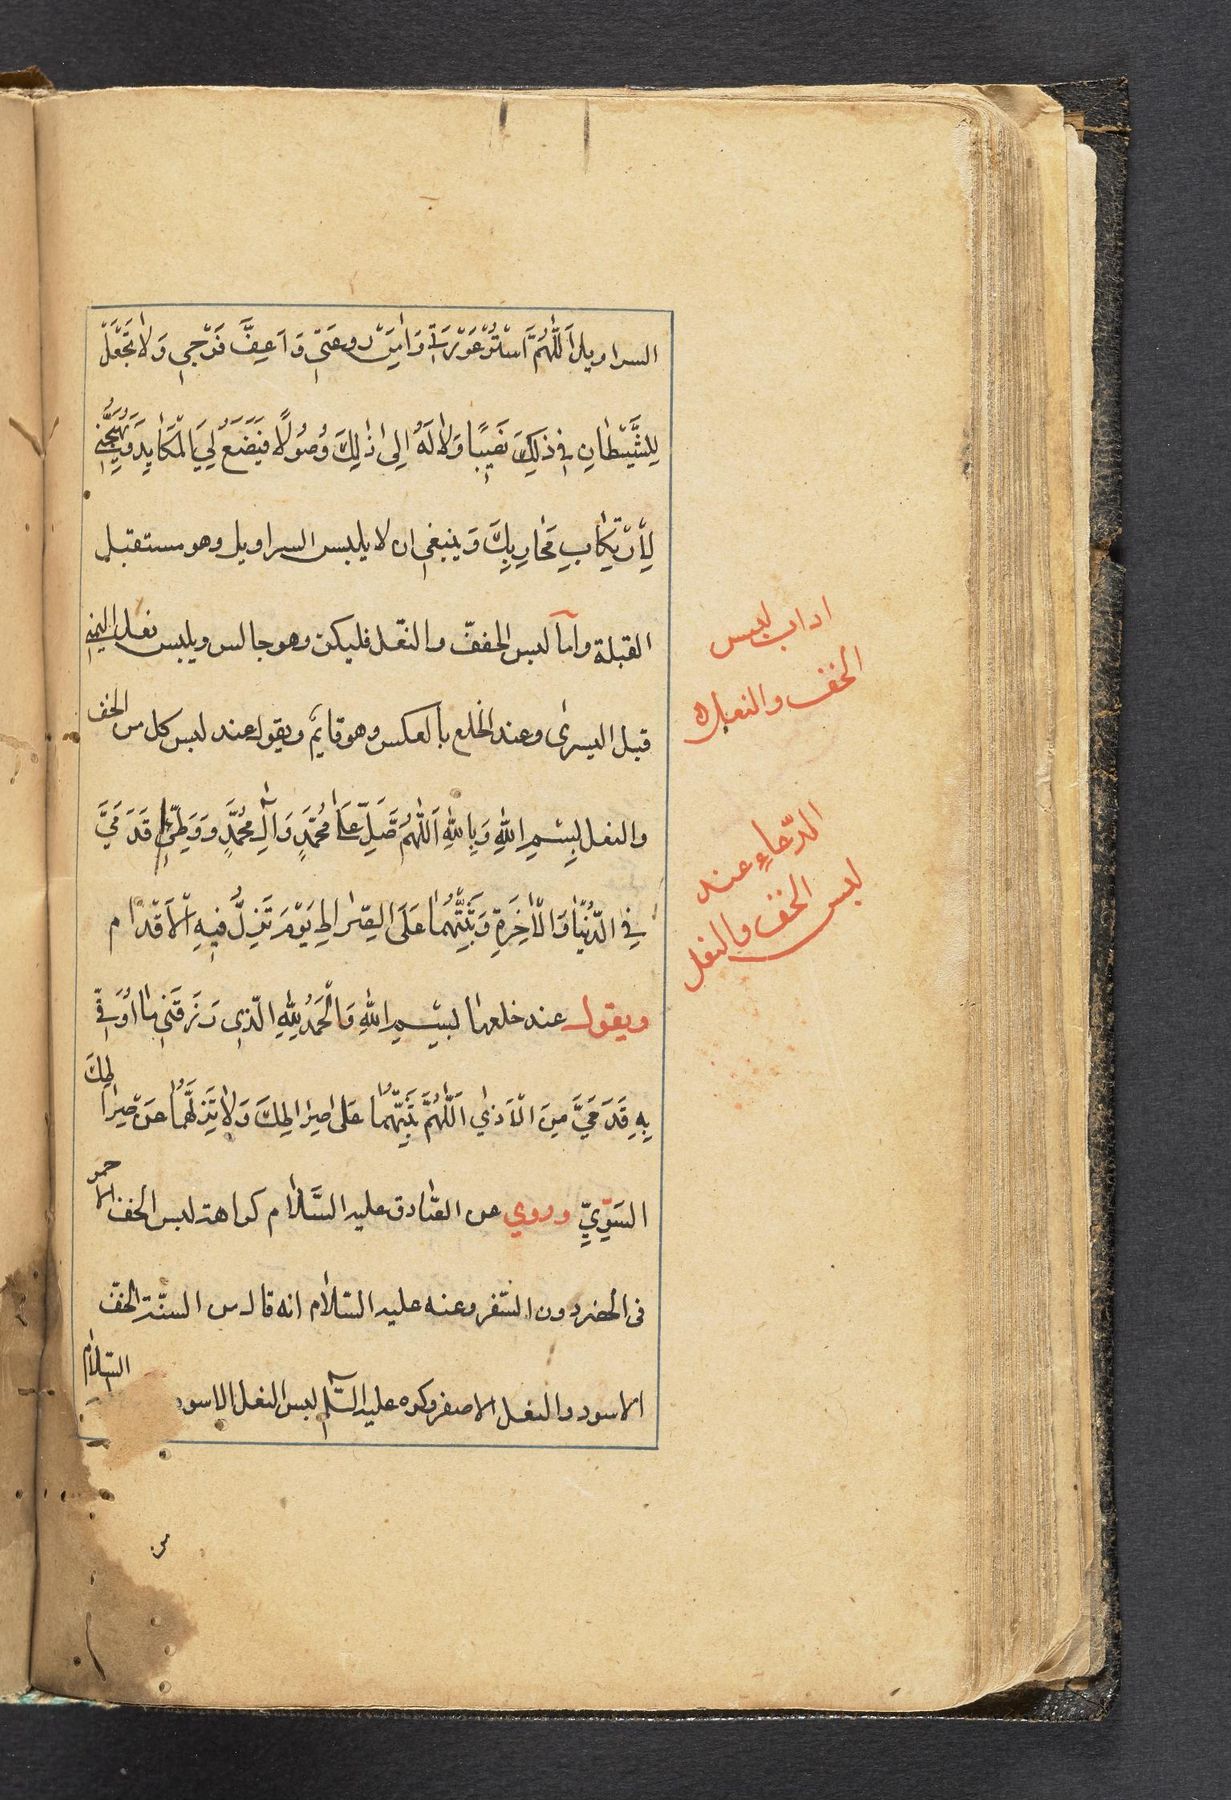 السراويل اَللّٰهُمَّ اسْتُرْ عَوْرَتي وَاٰمِنْ رَوعَتي وَاَعِفَّ فَرْجي وَلاٰ تَجْعَلْ
لِلشَّيْطٰانِ في ذٰلِكَ نَصيبًا وَلاٰ لَهُ اِلىٰ ذٰلِكَ وُصُولًا فَيَضَعَ لِيَ الْمَكٰايِدَ وَيُهَيِّجَني
لِاِرْتِكٰابِ مَحٰارِمِكَ وَينبغي ان لا يلبس السراويل وهو مستقبل
القبلة واما لبس الخفّ والنّعل فليكن وهو جالس ويلبس نعل اليمني
قبل اليسرىٰ وعند الخلع بالعكس وهو قايم ويقول عند لبس كل من الخف
والنعل بِسْمِ اللهِ وَبِاللهِ اَللّٰهُمَّ صَلِّ عَلىٰ مُحَمَّدٍ وَاٰلِ مُحَمَّدٍ وَوَطِّئْ قَدَمَيَّ
فِي الدُّنْيٰا وَالْاٰخِرَةِ وَثَبِّتْهُمٰا عَلَى الصِّرٰاطِ يَوْمَ تَزِلُّ فيهِ الْاَقْدٰام
ويقول عند خلعهما بِسْمِ اللهِ وَالْحَمْدُ لِلّٰهِ الَّذي رَزَقَني مٰا اُوَقّي
بِهِ قَدَمَيَّ مِنَ الْاَذٰي اَللّٰهُمَّ ثَبِّتْهُمٰا عَلىٰ صِرٰاطِكَ وَلاٰ تُزِلَّهُمٰا عَنْ صِرٰاطِكَ
السَّوِيِّ وروي عن الصّادق عليه السَّلاٰم كراهة لبس الخف الاحمر
في الحضر دون السّفر وعنه عليه السّلاٰم انه قال من السنّة الخفّ
الاسود والنعل الاصفر وكره عليه السّلم لبس النعل الاسود
السّلاٰم
اداب لبس
الخف والنعل
الدّعاء عند
لبس الخف والنعل